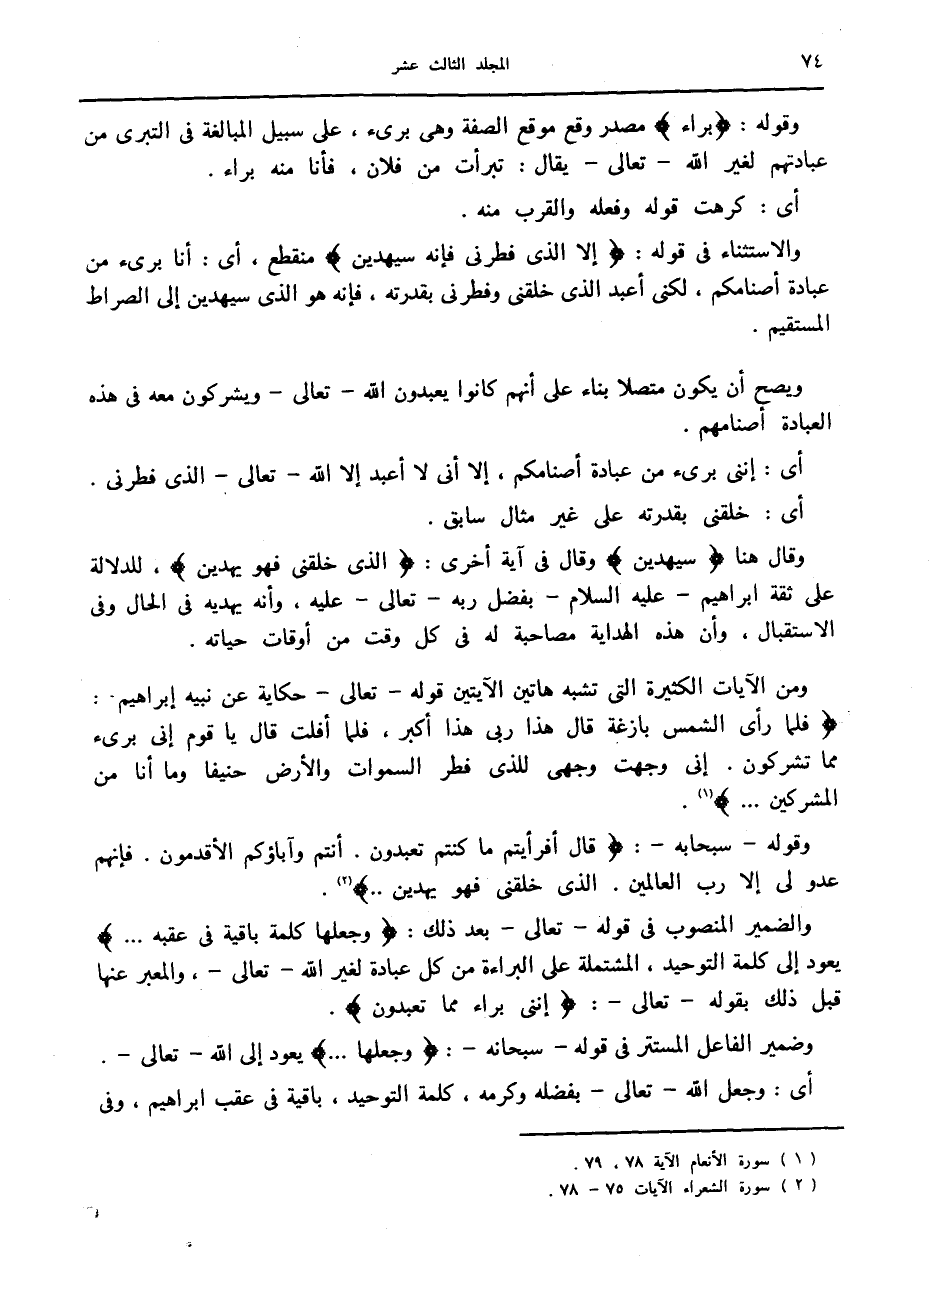 ٧٤ المجلد الثالث عشر
وقوله : ﴿ براء ﴾ مصدر وقع موقع الصفة وهى برىء ، على سبيل المبالغة فى التبرى من
عبادتهم لغير الله – تعالى – يقال : تبرأت من فلان ، فأنا منه براء .
أى : كرهت قوله وفعله والقرب منه .
والاستثناء فى قوله : ﴿ إلا الذى فطرنى فإنه سيهدين ﴾ منقطع ، أى : أنا برىء من
عبادة أصنامكم ، لكنى أعبد الذى خلقنى وفطرنى بقدرته ، فإنه هو الذى سيهدين إلى الصراط
المستقيم .
ويصح أن يكون متصلا بناء على أنهم كانوا يعبدون الله – تعالى – ويشركون معه فى هذه
العبادة أصنامهم .
أى : إننى برىء من عبادة أصنامكم ، إلا أنى لا أعبد إلا الله – تعالى – الذى فطرنى .
أى : خلقنى بقدرته على غير مثال سابق .
وقال هنا ﴿ سيهدين ﴾ وقال فى آية أخرى : ﴿ الذى خلقنى فهو يهدين ﴾ ، للدلالة
على ثقة ابراهيم – عليه السلام – بفضل ربه – تعالى – عليه ، وأنه يهديه فى الحال وفى
الاستقبال ، وأن هذه الهداية مصاحبة له فى كل وقت من أوقات حياته .
ومن الآيات الكثيرة التى تشبه هاتين الآيتين قوله – تعالى – حكاية عن نبيه إبراهيم - :
﴿ فلما رأى الشمس بازغة قال هذا ربى هذا أكبر ، فلما أفلت قال يا قوم إنى برىء
مما تشركون . إنى وجهت وجهى للذى فطر السموات والأرض حنيفا وما أنا من
المشركين ... ﴾(١) .
وقوله – سبحابه – : ﴿ قال أفرأيتم ما كنتم تعبدون . أنتم وآباؤكم الأقدمون . فإنهم
عدو لى إلا رب العالمين . الذى خلقنى فهو يهدين ..﴾(٢) .
والضمير المنصوب فى قوله – تعالى – بعد ذلك : ﴿ وجعلها كلمة باقية فى عقبه ... ﴾
يعود إلى كلمة التوحيد ، المشتملة على البراءة من كل عبادة لغير الله – تعالى – ، والمعبر عنها
قبل ذلك بقوله – تعالى – : ﴿ إننى براء مما تعبدون ﴾ .
وضمير الفاعل المستتر فى قوله – سبحانه – : ﴿ وجعلها ...﴾ يعود إلى الله – تعالى – .
أى : وجعل الله – تعالى – بفضله وكرمه ، كلمة التوحيد ، باقية فى عقب ابراهيم ، وفى
( ١ ) سورة الأنعام الآية ٧٨ ، ٧٩ .
( ٢ ) سورة الشعراء الآيات ٧٥ – ٧٨ .